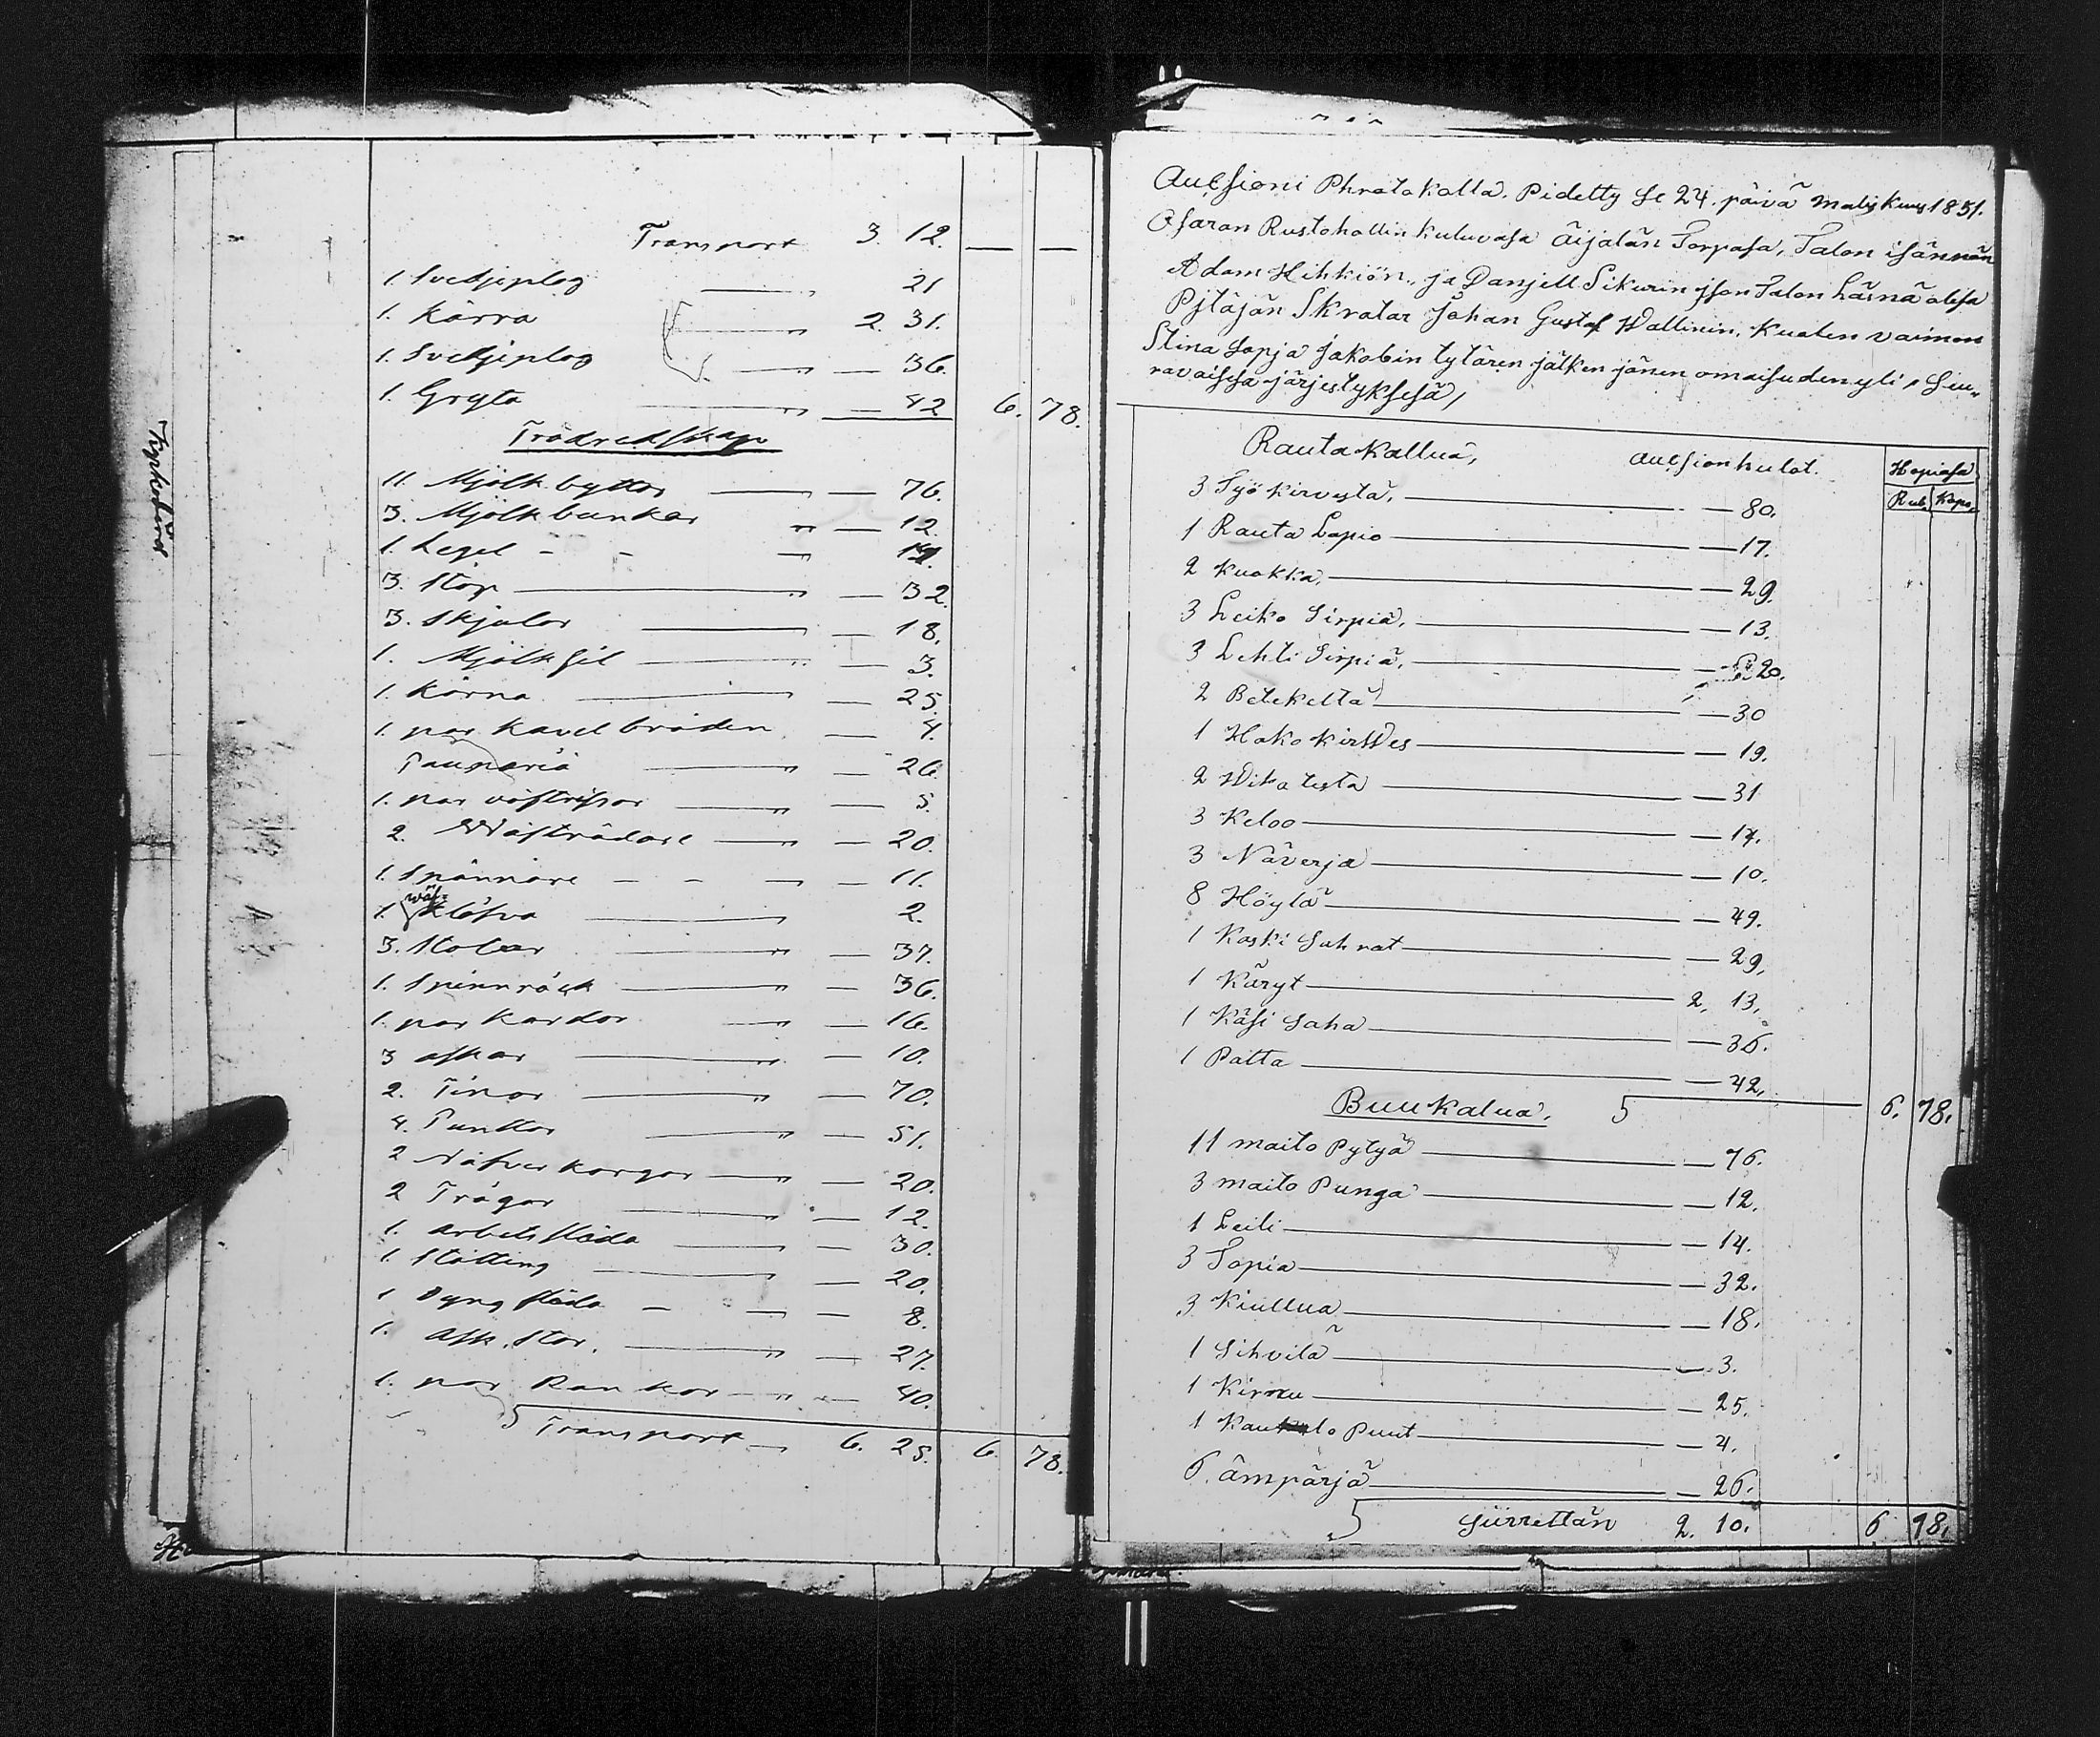 Transport 3. 12. — —
1. Svedjeplog — " — 21
1. Kärra — " — 2. 31.
1. Svedjeplog — " — 36.
1. Gryta — " — 42 6. 78.
Trädredskap
11. Mjölk byttor — " — 76.
3. Mjölk bunkar " — 12.
1. Legel - - " 14.
3. Stop — " — 32.
3. Skjulor — " — 18.
1. Mjölk sil — " — 3.
1. Kärna — " — 25.
1. par Kavel bräden — 4.
— " — 26.
1. par — " — 5.
2. — " — 20.
1. Spännare - - " — 11.
1. — " 2.
3. Stolar — " — 37.
1. Spinnråck — " — 36.
1. par Kardor " — 16.
3 askar — " — 10.
2. Tinor — " — 70.
4. Tunnor — " — 51.
2 Näfver korgor — " — 20.
2 Trågor — " — 12.
1. arbets släda — " — 30.
1. Stötting — " — 20.
1 Dyng släda - " — 8.
1. Ask. Stor. — " — 27.
1. par Rankor — " — 40.
Transport — 6. 25. 6. 78.
Tyrkobörd
Aucsioni Phrotokolla. Pidetty Se 24. päivä Maliskuus 1851.
Osaran Rustohollin kuluvasa Äijälän Torpasa, Talon isännän
Adam Hihkiön, ja Danjell Sikurin Talon Läsnä olesa
Pjtäjän Skratar Johan Gustaf Wallinin, Kuolen vaimon
Stina Sopja Jakobin tytären jälken jänen omaisuden yli, Seu„
ravaisesa järjestyksesä,
Rauta Kallua, aucsion hulot. Hopiasa
Rub. Kopo.
3 Työ kirvesta, — 80.
1 Rauta Lapio — 17.
2 Kuokka, — 29.
3 Leiko Sirpiä, — 13.
3 Lehti Sirpiä, — 20.
2 Betekeltä — 30
1 Hako kirWes — 19.
2 Wika testa — 31
3 Keloo — 14.
3 Näverja — 10.
8 Höylä — 49.
1 Koski Sahrat — 29,
1 Käryt — 2. 13.
1 Käsi Saha — 36.
1 Patta — 42.
Buu Kalua, 6. 78.
11 maito Pytyä — 76.
3 maito Punga — 12.
1 Leili — 14.
3 Topia — 32.
3 Kiullua — 18.
1 Sihvilä — 3.
1 Kirnu — 25.
1 Kaulo Puut — 4.
6. ämpärjä — 26.
Siirrettän 2. 10. 6 78.